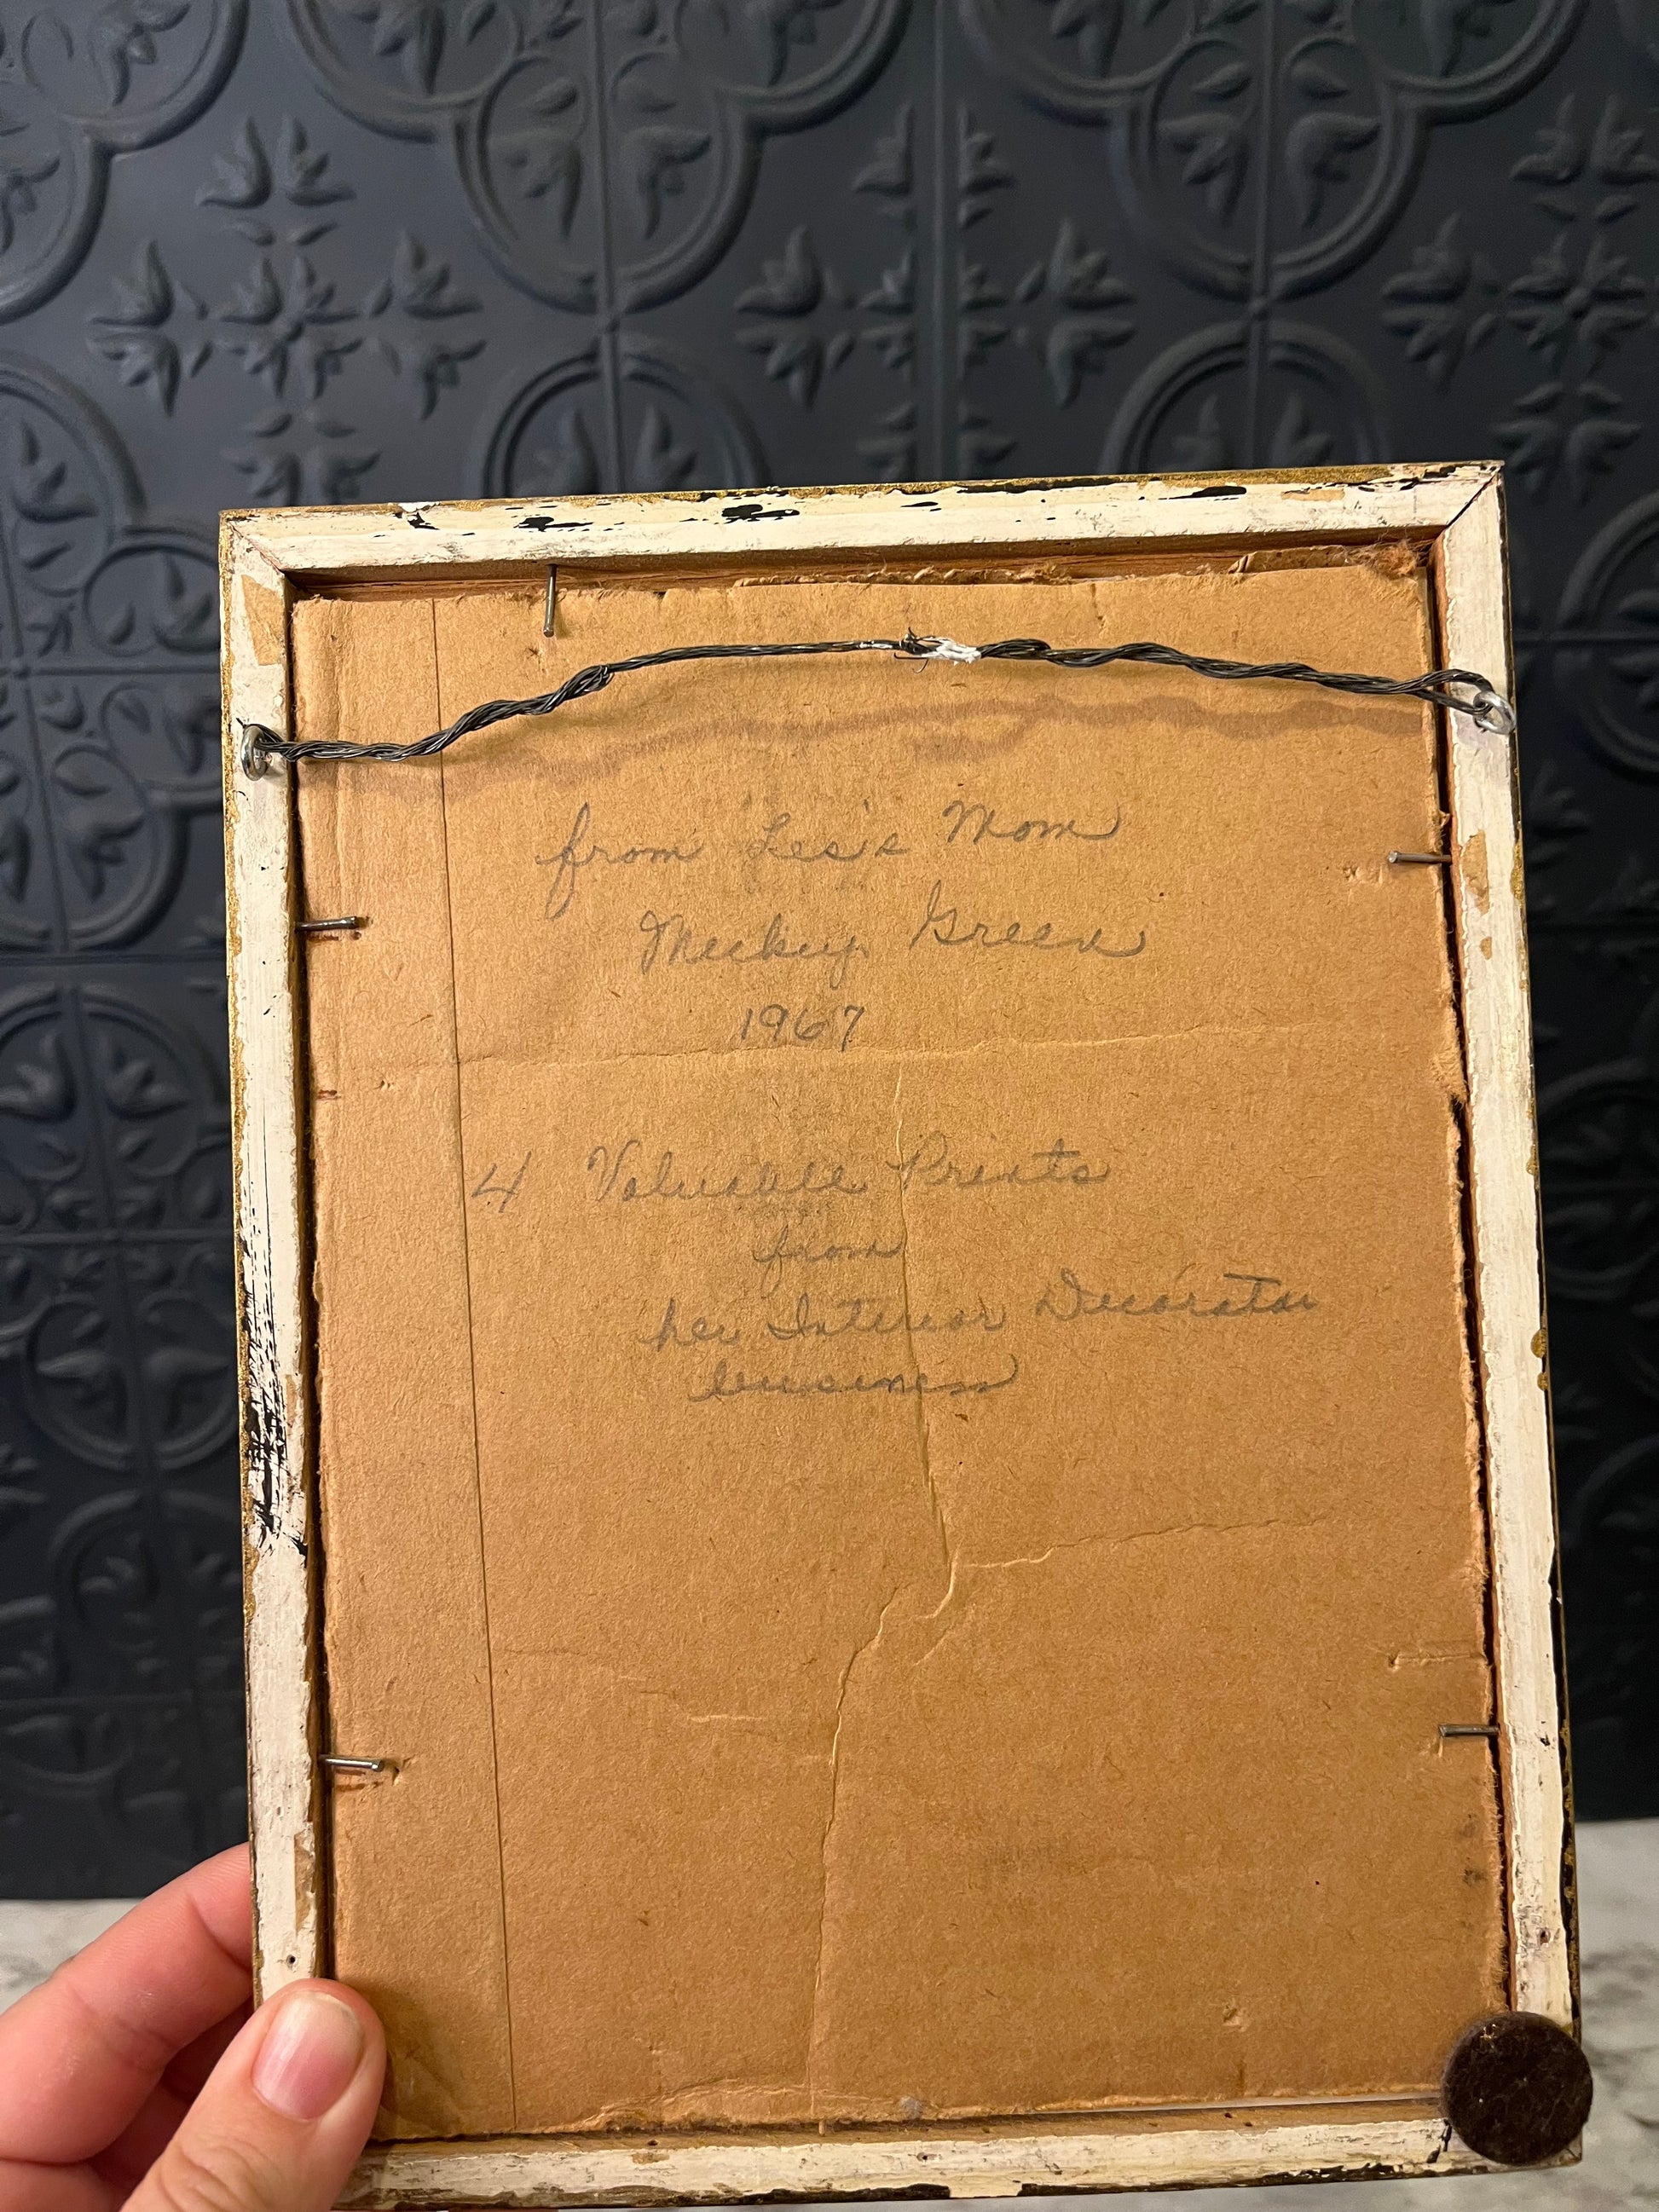 from Les's Mom
Mickey Green
1967
4 Valuable Prints
from
her Interior Decorator
business